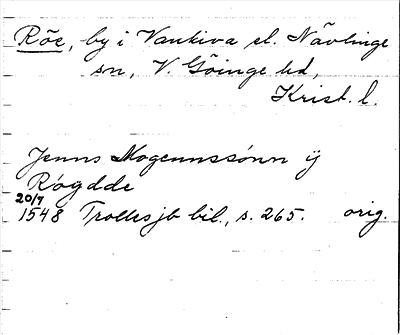 Röe, by i Vankiva el. Nävlinge
sn, V. Göinge hd,
Krist. l.
Jenns Mogennssónn ÿ
Røgdde
20/7
1548 Trollesjb bil., s. 265. orig.